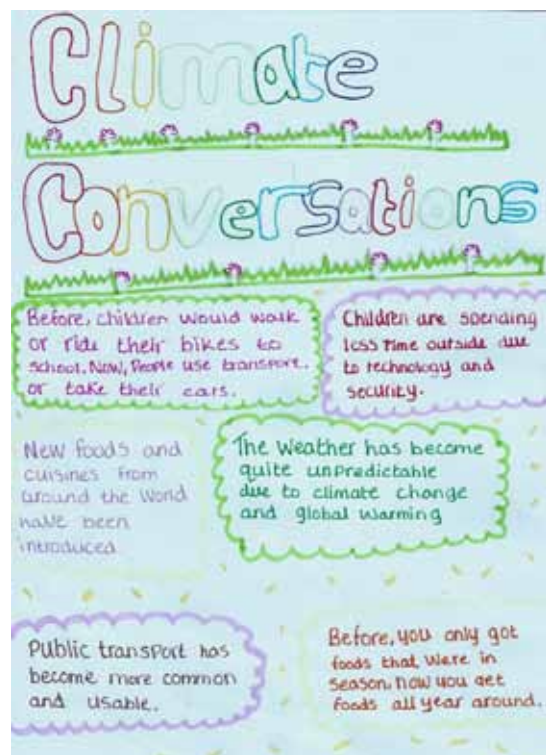 Climate
Conversations
Before, children would walk
or ride their bikes to
school. Now, People use transport.
or take their cars.
Children are spending
less time outside due
to technology and
security.
New foods and
cuisines from
around the World
have been
introduced
The Weather has become
quite unpredictable
due to climate change
and global warming
Public transport has
become more common
and usable.
Before, you only got
foods that were in
season. now you get
foods all year around.